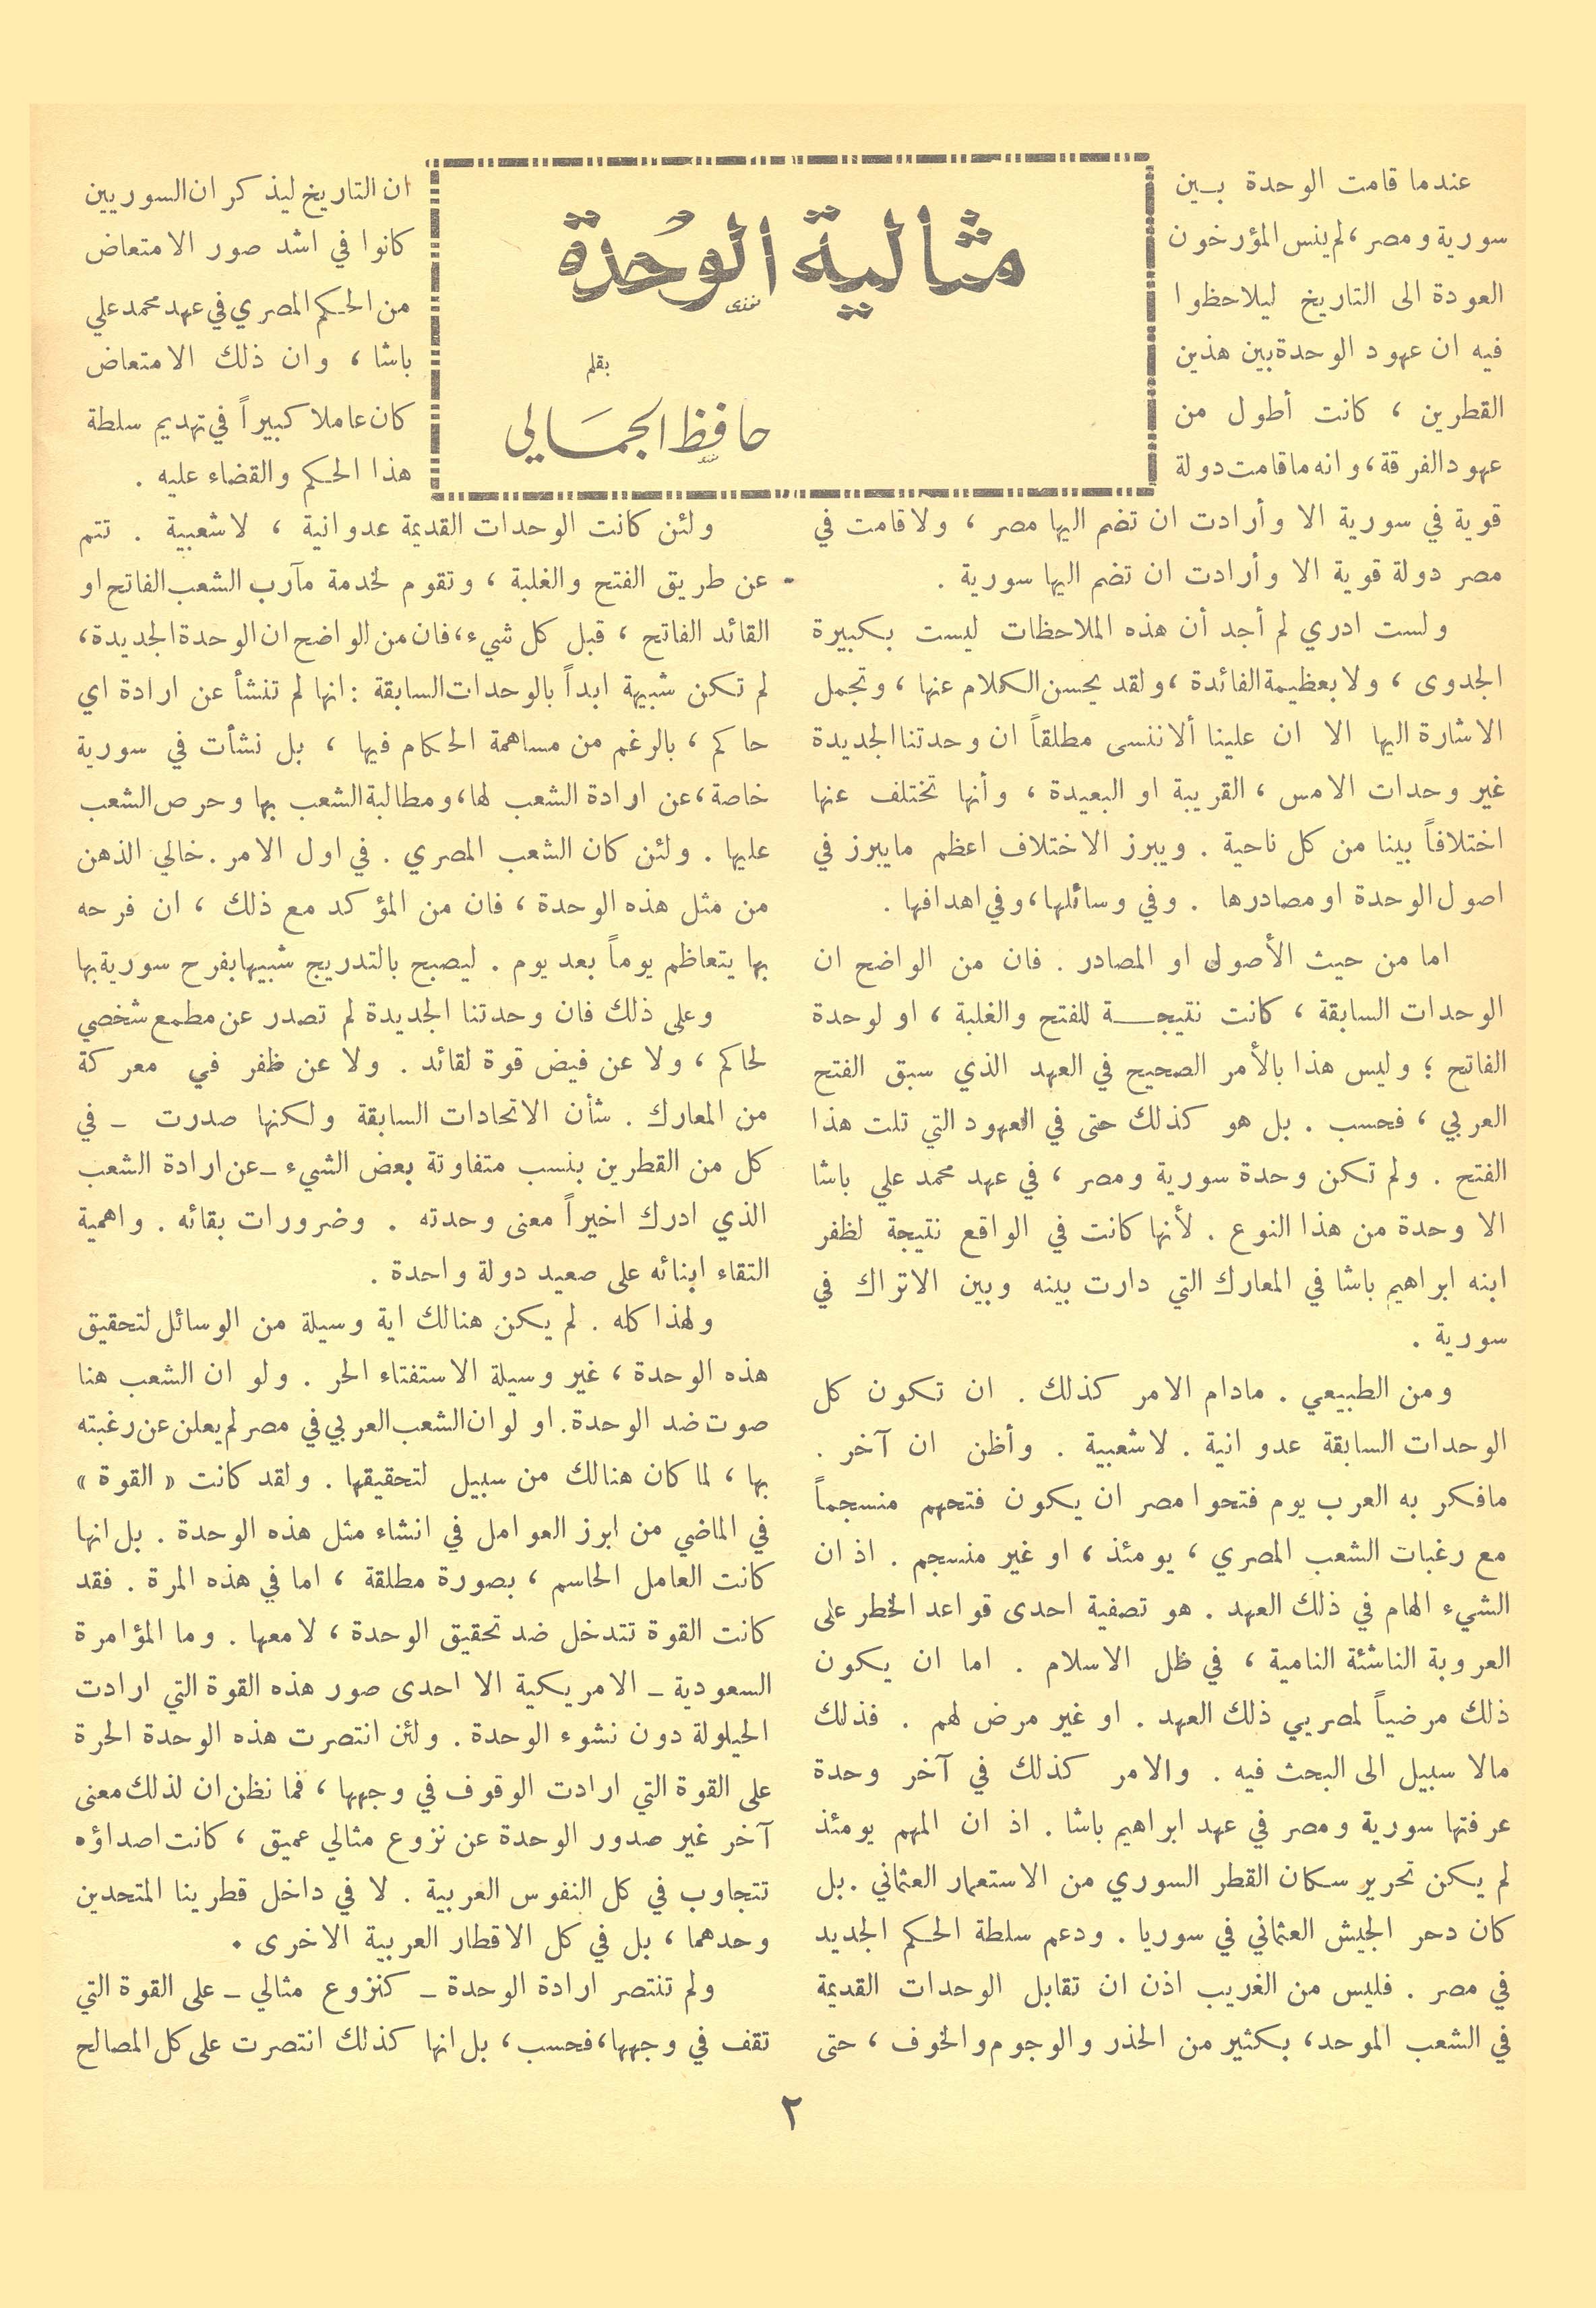 مثالية الوحدة
بقلم
حافظ الجمالي
عندما قامت الوحدة بين
سورية ومصر ، لم ينس المؤرخون
العودة الى التاريخ ليلاحظوا
فيه ان عهود الوحدة بين هذين
القطرين ، كانت أطول من
عهود الفرقة ، وانه ما قامت دولة
قوية في سورية الا وأرادت ان تضم اليها مصر ، ولا قامت في
مصر دولة قوية الا وأرادت ان تضم اليها سورية .
ولست ادري لم أجد أن هذه الملاحظات ليست بكبيرة
الجدوى ، ولا بعظيمة الفائدة ، ولقد يحسن الكلام عنها ، وتجمل
الاشارة اليها الا ان علينا ألا ننسى مطلقاً ان وحدتنا الجديدة
غير وحدات الامس ، القريبة او البعيدة ، وأنها تختلف عنها
اختلافاً بينا من كل ناحية . ويبرز الاختلاف اعظم مايبرز في
اصول الوحدة او مصادرها . وفي وسائلها ، وفي اهدافها .
اما من حيث الأصول او المصادر . فان من الواضح ان
الوحدات السابقة ، كانت نتيجـــة للفتح والغلبة ، او لوحدة
الفاتح ؛ وليس هذا بالأمر الصحيح في العهد الذي سبق الفتح
العربي ، فحسب . بل هو كذلك حتى في العهود التي تلت هذا
الفتح . ولم تكن وحدة سورية ومصر ، في عهد محمد علي باشا
الا وحدة من هذا النوع . لأنها كانت في الواقع نتيجة لظفر
ابنه ابراهيم باشا في المعارك التي دارت بينه وبين الاتراك في
سورية .
ومن الطبيعي . مادام الامر كذلك . ان تكون كل
الوحدات السابقة عدوانية . لاشعبية . وأظن ان آخر .
مافكر به العرب يوم فتحوا مصر ان يكون فتحهم منسجماً
مع رغبات الشعب المصري ، يومئذ ، او غير منسجم . اذ ان
الشيء الهام في ذلك العهد . هو تصفية احدى قواعد الخطر على
العروبة الناشئة النامية ، في ظل الاسلام . اما ان يكون
ذلك مرضياً لمصريي ذلك العهد . او غير مرض لهم . فذلك
مالا سبيل الى البحث فيه . والامر كذلك في آخر وحدة
عرفتها سورية ومصر في عهد ابراهيم باشا . اذ ان المهم يومئذ
لم يكن تحرير سكان القطر السوري من الاستعمار العثماني . بل
كان دحر الجيش العثماني في سوريا . ودعم سلطة الحكم الجديد
في مصر . فليس من الغريب اذن ان تقابل الوحدات القديمة
في الشعب الموحد ، بكثير من الحذر والوجوم والخوف ، حتى
ان التاريخ ليذكر ان السوريين
كانوا في اشد صور الامتعاض
من الحكم المصري في عهد محمد علي
باشا ، وان ذلك الامتعاض
كان عاملا كبيراً في تهديم سلطة
هذا الحكم والقضاء عليه .
ولئن كانت الوحدات القديمة عدوانية ، لاشعبية . تتم
عن طريق الفتح والغلبة ، وتقوم لخدمة مآرب الشعب الفاتح او
القائد الفاتح ، قبل كل شيء ، فان من الواضح ان الوحدة الجديدة ،
لم تكن شبيهة ابداً بالوحدات السابقة : انها لم تنشأ عن ارادة اي
حاكم ، بالرغم من مساهمة الحكام فيها ، بل نشأت في سورية
خاصة ، عن ارادة الشعب لها ، ومطالبة الشعب بها وحرص الشعب
عليها . ولئن كان الشعب المصري . في اول الامر . خالي الذهن
من مثل هذه الوحدة ، فان من المؤكد مع ذلك ، ان فرحه
بها يتعاظم يوماً بعد يوم . ليصبح بالتدريج شبيها بفرح سورية بها
وعلى ذلك فان وحدتنا الجديدة لم تصدر عن مطمع شخصي
لحاكم ، ولا عن فيض قوة لقائد . ولا عن ظفر في معركة
من المعارك . شأن الاتحادات السابقة ولكنها صدرت ــ في
كل من القطرين بنسب متفاوتة بعض الشيء ــ عن ارادة الشعب
الذي ادرك اخيراً معنى وحدته . وضرورات بقائه . واهمية
التقاء ابنائه على صعيد دولة واحدة .
ولهذا كله . لم يكن هنالك اية وسيلة من الوسائل لتحقيق
هذه الوحدة ، غير وسيلة الاستفتاء الحر . ولو ان الشعب هنا
صوت ضد الوحدة . او لو ان الشعب العربي في مصر لم يعلن عن رغبته
بها ، لما كان هنالك من سبيل لتحقيقها . ولقد كانت « القوة »
في الماضي من ابرز العوامل في انشاء مثل هذه الوحدة . بل انها
كانت العامل الحاسم ، بصورة مطلقة ، اما في هذه المرة . فقد
كانت القوة تتدخل ضد تحقيق الوحدة ، لا معها . وما المؤامرة
السعودية ــ الامريكية الا احدى صور هذه القوة التي ارادت
الحيلولة دون نشوء الوحدة . ولئن انتصرت هذه الوحدة الحرة
على القوة التي ارادت الوقوف في وجهها ، فما نظن ان لذلك معنى
آخر غير صدور الوحدة عن نزوع مثالي عميق ، كانت اصداؤه
تتجاوب في كل النفوس العربية . لا في داخل قطرينا المتحدين
وحدهما ، بل في كل الاقطار العربية الاخرى .
ولم تنتصر ارادة الوحدة ــ كنزوع مثالي ــ على القوة التي
تقف في وجهها ، فحسب ، بل انها كذلك انتصرت على كل المصالح
٢